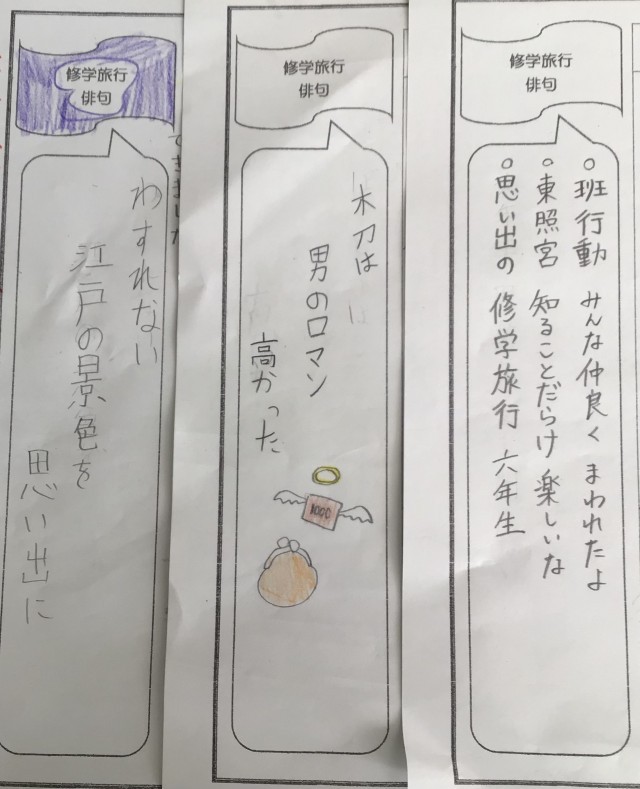 修学旅行
俳句
○班行動 みんな仲良く まわれたよ
○東照宮 知ることだらけ 楽しいな
○思い出の 修学旅行 六年生
修学旅行
俳句
木刀は
男のロマン
高かった
1000
修学旅行
俳句
わすれない
江戸の景色を
思い出に